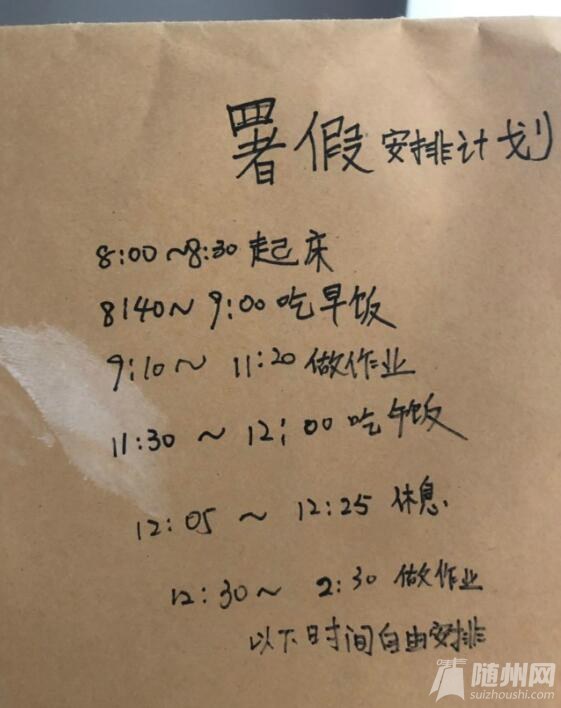 暑假安排计划
8:00~8:30 起床
8:40~9:00 吃早饭
9:10~11:20 做作业
11:30~12:00 吃午饭
12:05~12:25 休息.
12:30~2:30 做作业
以下时间自由安排
随州网
suizhoushi.com